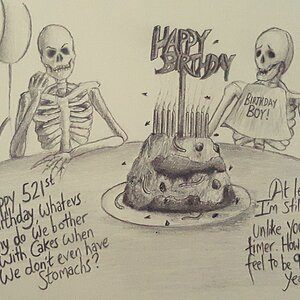 HAPPY
BIRTHDAY
BIRTHDAY
BOY!
ppy 521st
irthday Whatevs
hy do we bother
with Cakes when
We don't even have
Stomachs?
At l
I'm Still
Unlike Yo
timer. How
feel to be 9
yea